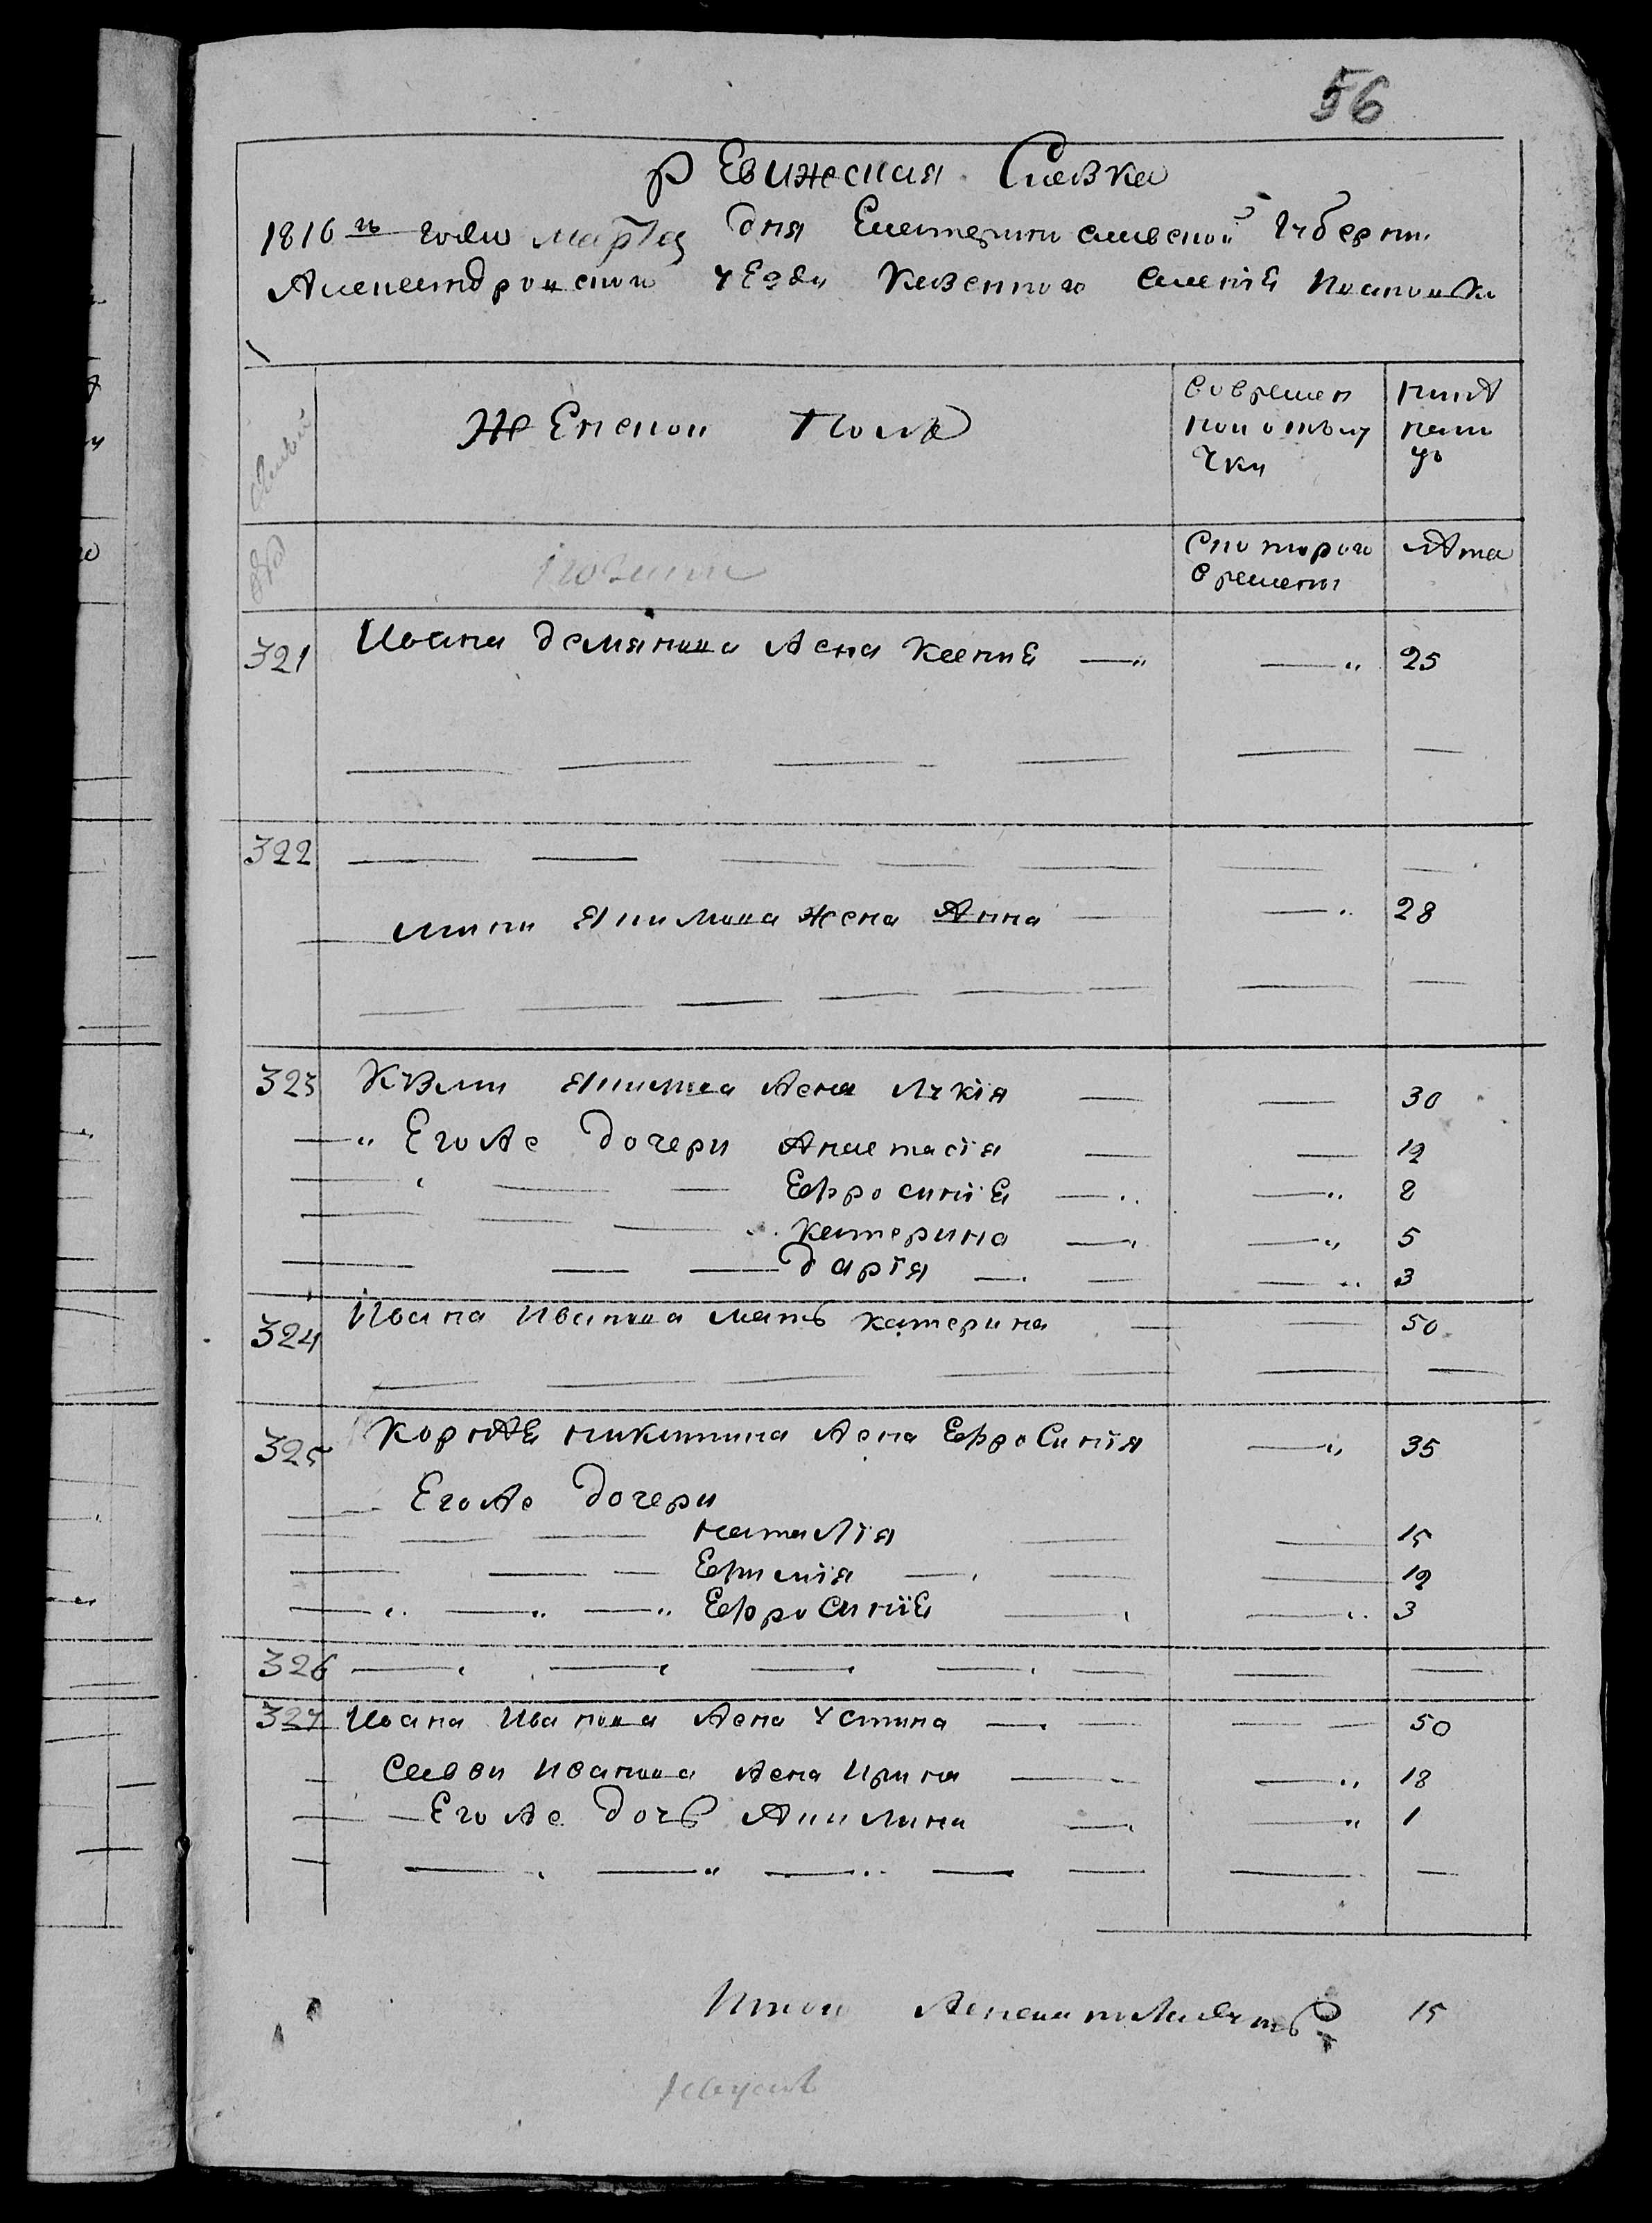 56
рЕвижская Сказка
1816 го года марта дня Екатеринославской Губерни
Александровского уЕзда Казенного Селенія
ЖЕнской Поль
вовремен
ной отлу
чки
нинѣ
нали
цо
с которого
времени
лѣта
321 Ивана демянова жена ксениЕ 25
322
жена Анна 28
323 жена Лукія 30
Егоже дочери Анастасія 12
ЕфросиніЕ 8
катерина 5
дарія 3
324 Ивана Иванова мать катерина 50
325 КорнѣЕ никитина жена Ефросинія 35
Егоже дочери
наталія 15
Ефимія 12
ЕфросиніЕ 3
326
327 Ивана Иванова жена Устина 50
Савви Иванова жена Ирина 18
Егоже дочь Акилина 1
Итого женска полу душъ 15